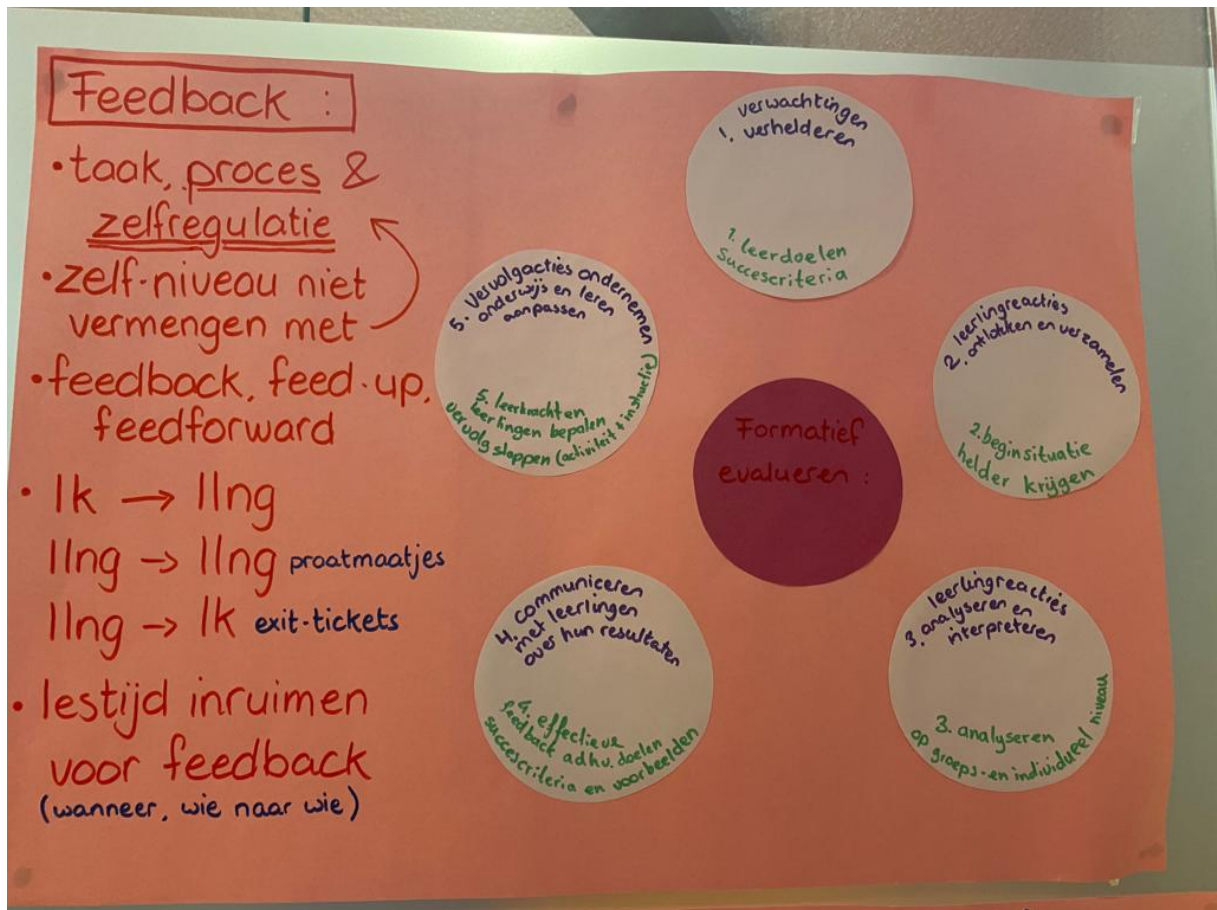 Feedback :
• taak, proces &
zelfregulatie
• zelf-niveau niet
vermengen met
• feedback, feed-up,
feedforward
• lk → llng
llng → llng praatmaatjes
llng → lk exit-tickets
• lestijd inruimen
voor feedback
(wanneer, wie naar wie)
Formatief
evalueren :
verwachtingen
1. verhelderen
1. leerdoelen
succescriteria
leerlingreacties
2. ontlokken en verzamelen
2. beginsituatie
helder krijgen
leerlingreacties
3. analyseren en
interpreteren
3. analyseren
op groeps- en individueel niveau
4. communiceren
met leerlingen
over hun resultaten
4. effectieve
feedback adhv. doelen
succescriteria en voorbeelden
5. vervolgacties ondernemen
onderwijs en leren
aanpassen
5. leerkracht en
leerlingen bepalen
vervolg stappen (activiteit + instructie)